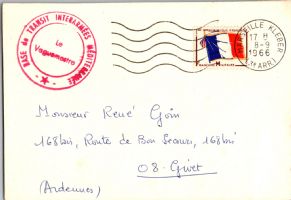 BASE de TRANSIT INTERARMÉES MÉDITERRANÉE
Le
Vaguemestre
MARSEILLE KLEBER
17 H
8-9
1966
Monsieur René
168bis, Route de Bon Secours, 168bis
08-Givet
(Ardennes)